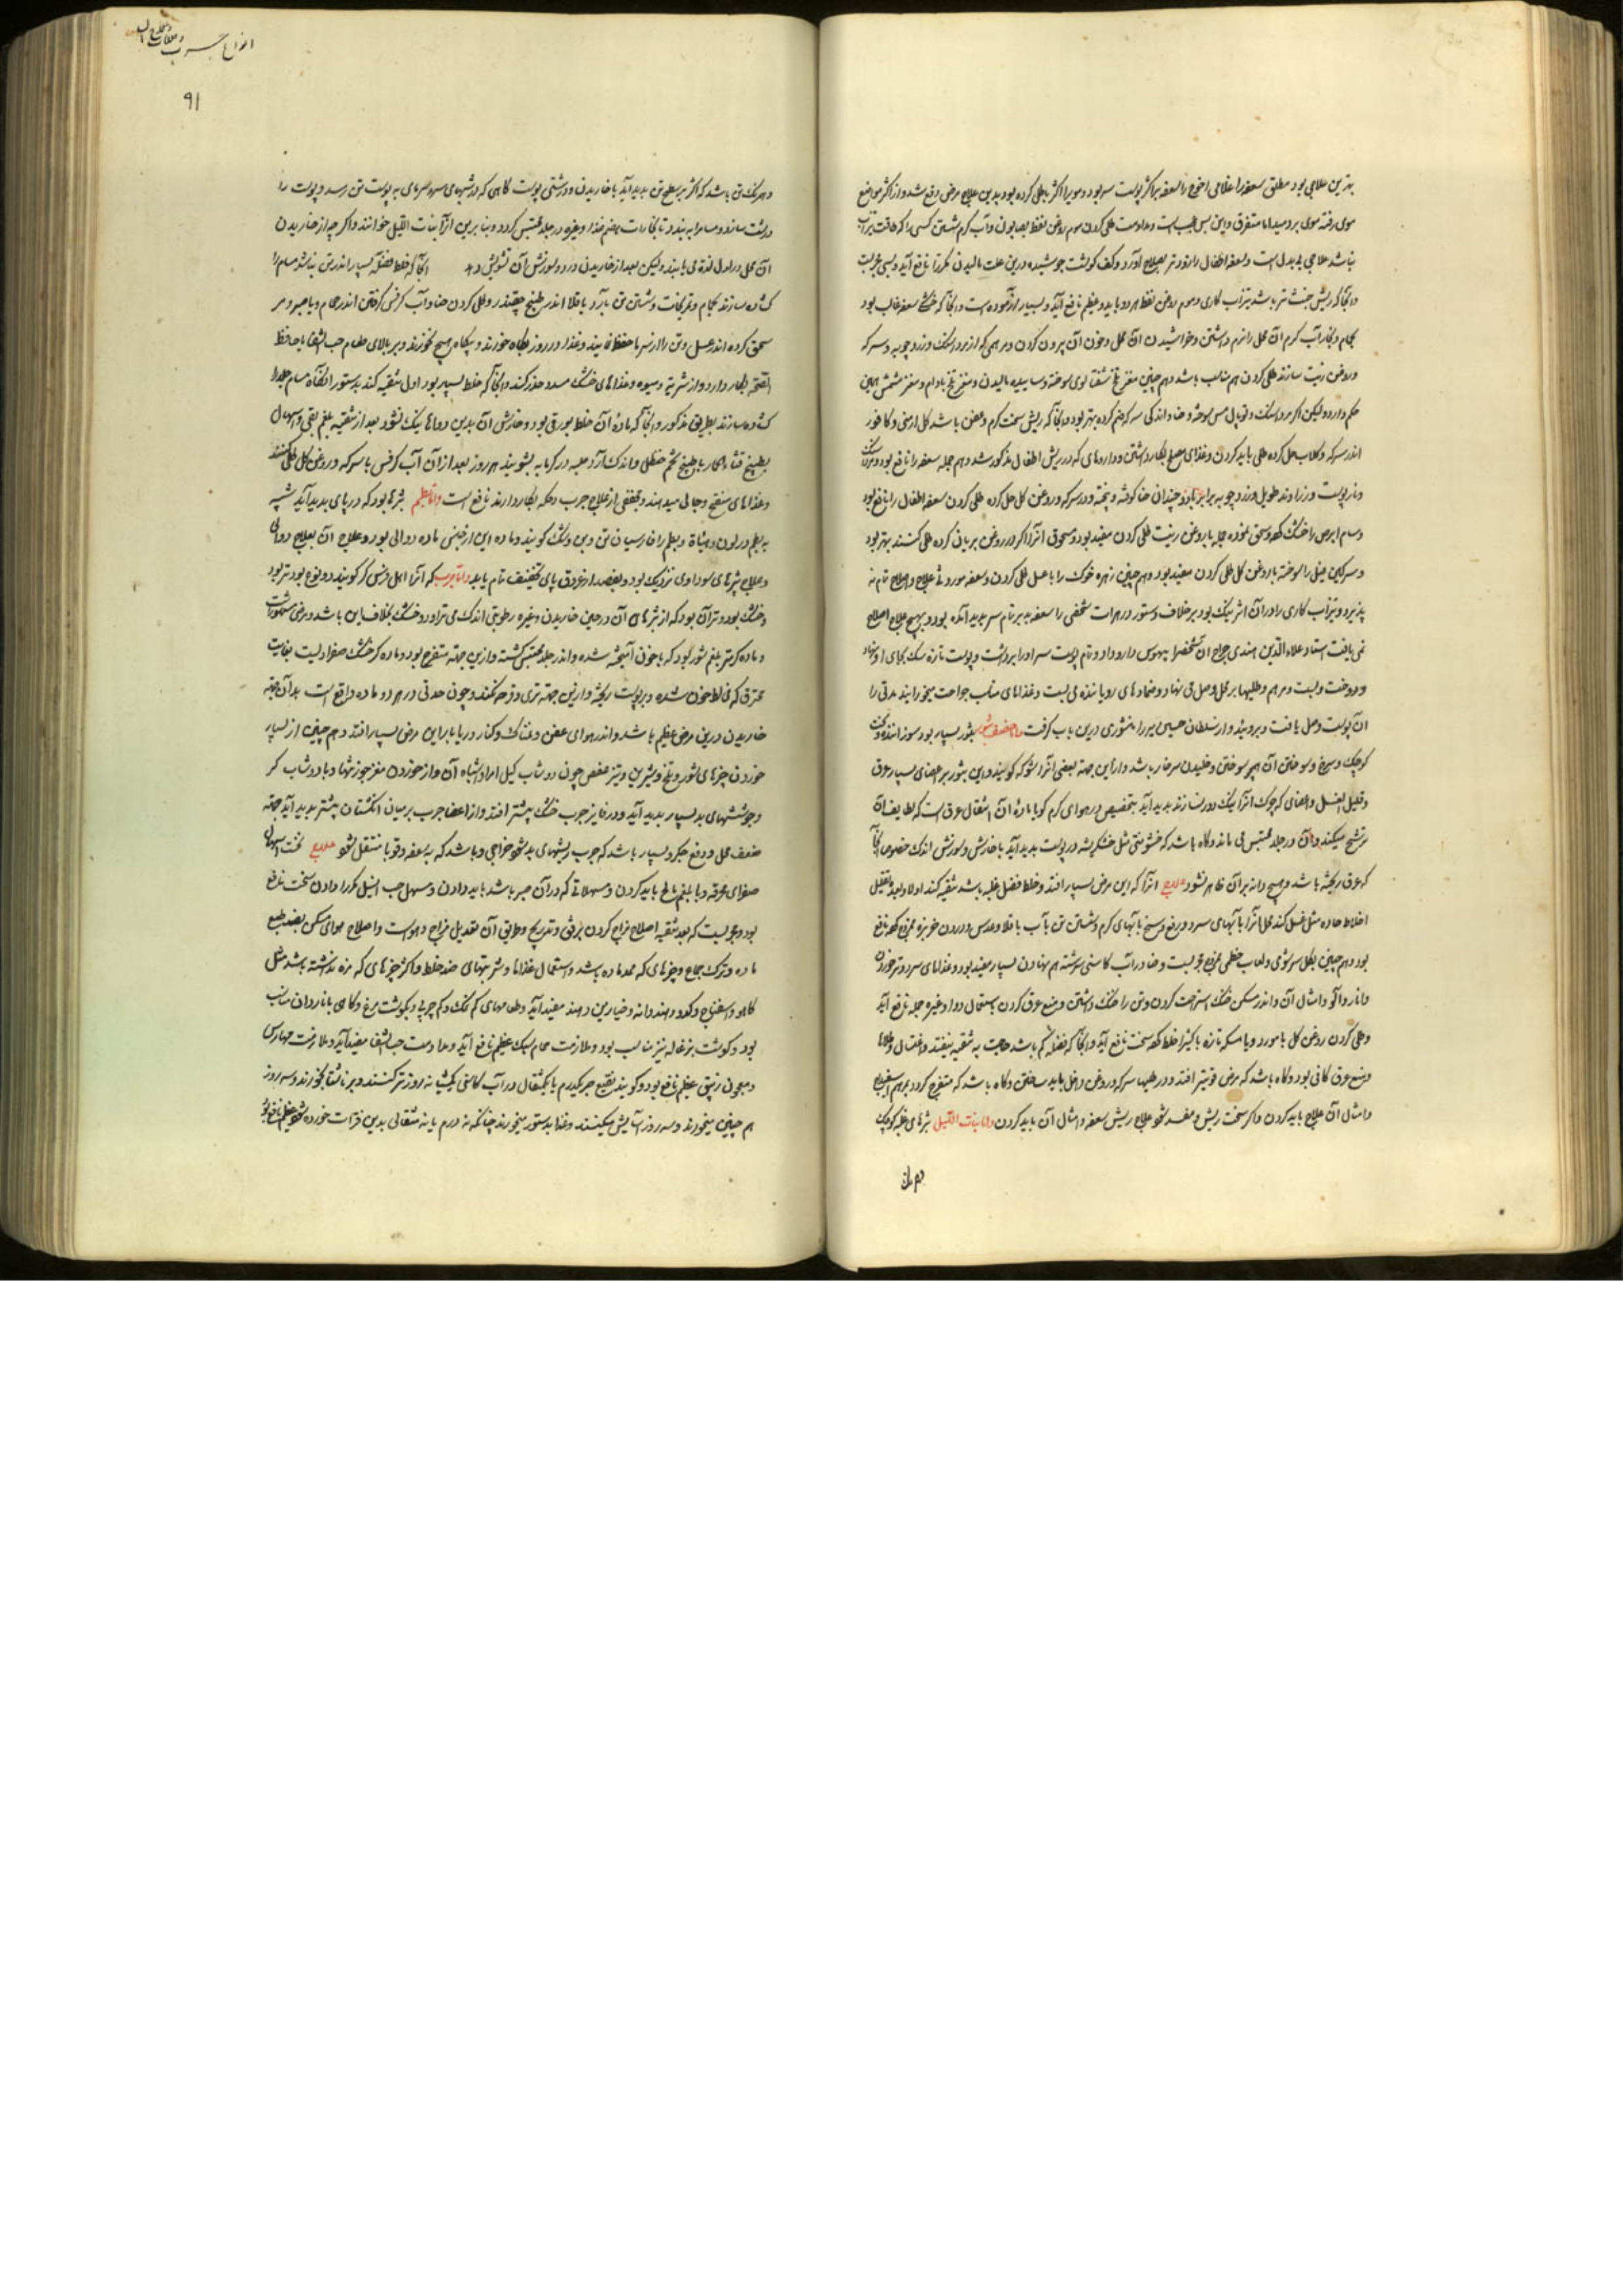 بهترین علاجی بود مطلق سعفه را غلامی اخوج را سعفه بر اکثر پوست سر بود و مویرا اکثر باطل کرده بود بدین علاج مرض رفع شد و از اکثر مواضع
موی رفته موی بر دمید اما متفرق و این بس عجیب است و مداومت طلی کردن موم روغن نفط بصابون و آب گرم شستن کسی را که طاقت تیزاب
نباشد علاجی بی بدل است و سعفه اطفال را زودتر بصلاح آورد و کف گوشت جوشیده درین علت مالیدن مکرر نافع آید و بسی مجربست
و آنجا که ریش خبیث تر باشد تیزاب کاری و موم روغن نفط هر دو باید و عظیم نافع آید و بسیار آزموده است و آنجا که خشکی سعفه غالب بود
بحمام و بخار آب گرم آن محل را نرم داشتن و خراشیدن آن محل و خون آن بیرون کردن و مرهمی که از مرداسنگ و زردچوبه و سرکه
و روغن زیت سازند طلی کردن هم مناسب باشد و همچنین مغز تخم شفتالوی سوخته و ساییده مالیدن و مغز تلخ بادام و مغز مشمش همین
حکم دارد و لیکن اگر مرداسنگ و توبال مس سوخته و حنا و اندکی سرکه ضم کرده بهتر بود و آنجا که ریش سخت گرم و عفن باشد گل ارمنی و کافور
اندر سرکه و گلاب حل کرده طلی باید کردن و غذای مصلح بکار داشتن و داروهای که در ریش اطفال مذکور شد و هم جمله سعفه را نافع بود و مردارسنگ
و نار پوست و زراوند طویل و زردچوبه برابر و دو چندان حنا کوفته و پخته و در سرکه و روغن گل حل کرده طلی کردن سعفه اطفال را نافع بود
و سام ابرص را خشک کرده و سحق نموده جمله با روغن زیت طلی کردن مفید بود و مسحوق آنرا اگر در روغن بریان کرده طلی کنند بهتر بود
و سرگین فیل را سوخته با روغن گل طلی کردن مفید بود و همچنین زهره خوک را با عسل طلی کردن و سعفه موروثی علاج و اصلاح تام نه
پذیرد و تیزاب کاری را در آن اثر نیک بود بر خلاف دستور در هرات شخصی را سعفه بر تمام سر پدید آمده بود و بهیچ علاج اصلاح
نمی یافت استاد علاء الدین هندی جراح آن شخص را بیهوش دارو داد و تمام پوست سر او را برداشت و پوست تازه سگ بجای او نهاد
و دوخت و بست و مرهم و طلیها بر محل وصل می نهاد و ضمادهای رویاننده می بست و غذاهای مناسب جراحت میخورانید مدتی را
آن پوست وصل یافت و بروئید و از سلطان حسین میرزا منشوری درین باب گرفت واما حصف بثور بسیار بود سوزاننده
کوچک و سرخ و سوختن آن همچو سوختن و خلیدن سر خار باشد و از این جهة بعضی آنرا شوکه گویند و این بثور بر اعضای بسیار عرق
و قلیل الغسل و اعضای که چرک آنرا نیک دور نسازند پدید آید بتخصیص در هوای گرم گویا ماده آن اثقال عرق است که لطایف آن
مترشح میکند و آن در جلد محتبس می ماند و گاه باشد که خشونتی مثل خشکریشه در پوست پدید آید با خارش و سوزش اندک خصوصا آنجا
که عرق ریخته باشد و هیچ دانه بر آن ظاهر نشود علاج آنرا که این مرض بسیار افتد و خلط فضل غلبه باشد تنقیه کنند اولا و بعد تقلیل
اخلاط حاده مثل غسل کند محل آنرا با آبهای سرد و رفع وسخ بآبهای گرم و شستن تن بآب باقلا و عدس و درون خربزه ممزوج کرده نافع
بود و همچنین بگل سرشوی و لعاب خطمی ممزوج مجربست و حنا در آب کاسنی سرشته هم نهادن بسیار مفید بود و غذاهای سرد و تر خوردن
و انار و آلو و امثال آن و اندر مسکن خنک استراحت کردن و تن را خنک داشتن و منع عرق کردن باستعمال دوا و غیره جمله نافع آید
و طلی کردن روغن گل با مورد و یا مسکه تازه با کتیرا خلط کرده سخت نافع آید و آنجا که فضله کم باشد حاجت به تنقیه نیفتد و اغتسال و طلاها
و منع عرق کافی بود و گاه باشد که مرض قوی تر افتد و در طلیها سرکه و روغن داخل باید ساختن و گاه باشد که متقرح گردد بمرهم اسفیداج
و امثال آن علاج باید کردن و اگر سخت ریش و مفسد شود علاج ریش سعفه و امثال آن باید کردن واما بنات اللیل بثرهای غلبه کوچک
انواع جرب و
۹۱
و همرنگ تن باشد که اکثر بر سطح تن پدید آید با خاریدن و درشتی پوست گاهی که در شبهای سرد سرمای به پوست تن رسد و پوست را
درشت سازد و مسام را به بندد تا بخارات هضم غذا و غیره در جلد محتبس گردد و بنا برین آنرا بنات اللیل خوانند و اگر چه از خاریدن
آن محل در اول لذة می یابند و لیکن بعد از خاریدن درد و سوزش آن تشویش دهد آنجا که خلط فضله بسیار اندر تن نباشد مسام را
گشاده سازند بحمام و تمریخات و شستن تن بآرد باقلا اندر طبیخ چقندر و طلی کردن حنا و آب کرفس گرفتن اندر حمام و یا صبر و مر
سحق کرده اندر عسل و تن را از سرما حفظ نمایند و غذا در روز بگاه خورند و بیگاه هیچ نخورند و بر بالای طعام حب الشفا یا حافظ
الصحه بکار دارد و از شربة و میوه و غذاهای خشک مسدد حذر کنند و آنجا که خلط بسیار بود اول تنقیه کند بدستور آنگاه مسام جلد را
گشاده سازند بطریق مذکور و آنجا که مادهٔ آن خلط بورقی بود و خارش آن بدین دواها نیک نشود بعد از تنقیه بلغم بقی و اسهال
بطبیخ قثاء الحمار یا طبیخ تخم حنظل و اندک آرد حلبه در گرمابه بشویند هر روز بعد از آن آب کرفس با سرکه و روغن گل طلی کنند
و غذاهای منضج و جالی میدهند و بعضی از علاج جرب و حکه بکار دارند نافع است واما بطم بثرها بود که در پای پدید آید شبیه
به بطم در لون و هیأة و بطم را فارسیان بن و ون و بنک گویند و ماده این از جنس ماده دوالی بود و علاج آن بعلاج دوالی
و علاج بثرهای سوداوی نزدیک بود و بفصد از عروق پای تخفیف تمام یابد واما جرب که آنرا اهل فرس گر گویند دو نوع بود تر بود
و خشک بود و تر آن بود که از بثرهای آن در حین خاریدن و غیره رطوبتی اندک می تراود و خشک بخلاف این باشد و مرضی مشهور است
و ماده گر تر بلغم شور بود که با خون آمیخته شده و اندر جلد محتبس گشته و ازین جهة متقرح بود و ماده گر خشک صفرا ایست بغایت
محترق که مخالط خون شده و بر پوست ریخته و ازین جهة تری و قرحه نکند و چون حدتی در هر دو ماده واقع است بدان جهة
خاریدن درین مرض عظیم باشد و اندر هوای عفن و نمناک و کنار دریابارها این مرض بسیار افتد و همچنین از بسیار
خوردن چیزهای شور و تلخ و شیرین و تیز عفص چون دوشاب کیل امرود و اشباه آن و از خوردن مغز جوز تنها و با دوشاب گر
و جوششهای بد بسیار پدید آید و در فایز جرب خشک بیشتر افتد و از اعضا جرب بر میان انگشتان بیشتر پدید آید جهة
ضعف محل و دفع جگر و بسیار باشد که جرب ریشهای بد شود خراجی و باشد که به سعفه و قوبا منتقل شود علاج نخست اسهال
صفرای محرقه و یا بلغم مالح باید کردن و مسهلاتی که در آن صبر باشد باید دادن و مسهل حب النیل مکرر دادن سخت نافع
بود و مجربست که بعد تنقیه اصلاح مزاج کردن برفق و تدریج و طریق آن تعدیل مزاج دم است و اصلاح هوای مسکن بضد طبع
ماده و ترک جماع و چیزهای که ممد ماده باشد و استعمال غذاها و شربتهای ضد خلط و اکثر چیزهای که مزه نداشته باشد مثل
کاهو و اسفناج و کدو و هندوانه و خیارین دهند مفید آید و طعامهای کم نمک و کم چربی و بگوشت مرغ و گاهی با ناردان مناسب
بود و گوشت بزغاله نیز مناسب بود و ملازمت حمام سبک عظیم نافع آید و مداومت حب الشفا مفید آید و ملازمت مهارس
و معجون زیبق عظیم نافع بود و گویند نقیع صبر یکدرم یا یکمثقال در آب کاسنی یکشبانه روز تر کنند و بر ناشتا بخورند و سه روز
همچنین میخورند و سه روز آسایش میکنند و غذا بدستور میخورند چنانکه نه درم یا نه مثقال بدین مرات خورده شود عظیم نافع بود